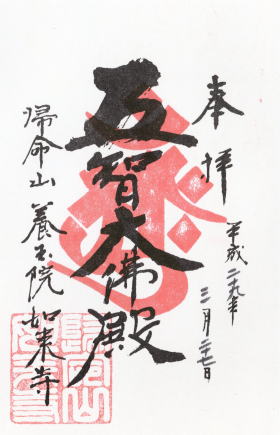 奉拝
平成二十九年
三月二十七日
五智大佛殿
帰命山養玉院如来寺